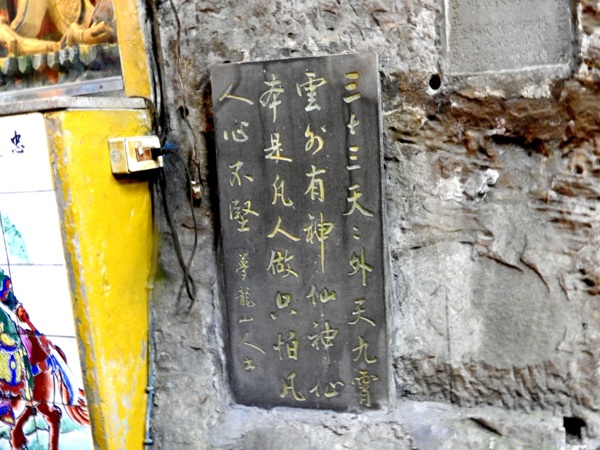 三十三天〻外天九霄
雲外有神仙神仙
本是凡人做只怕凡
人心不堅 夢龍山人士
忠